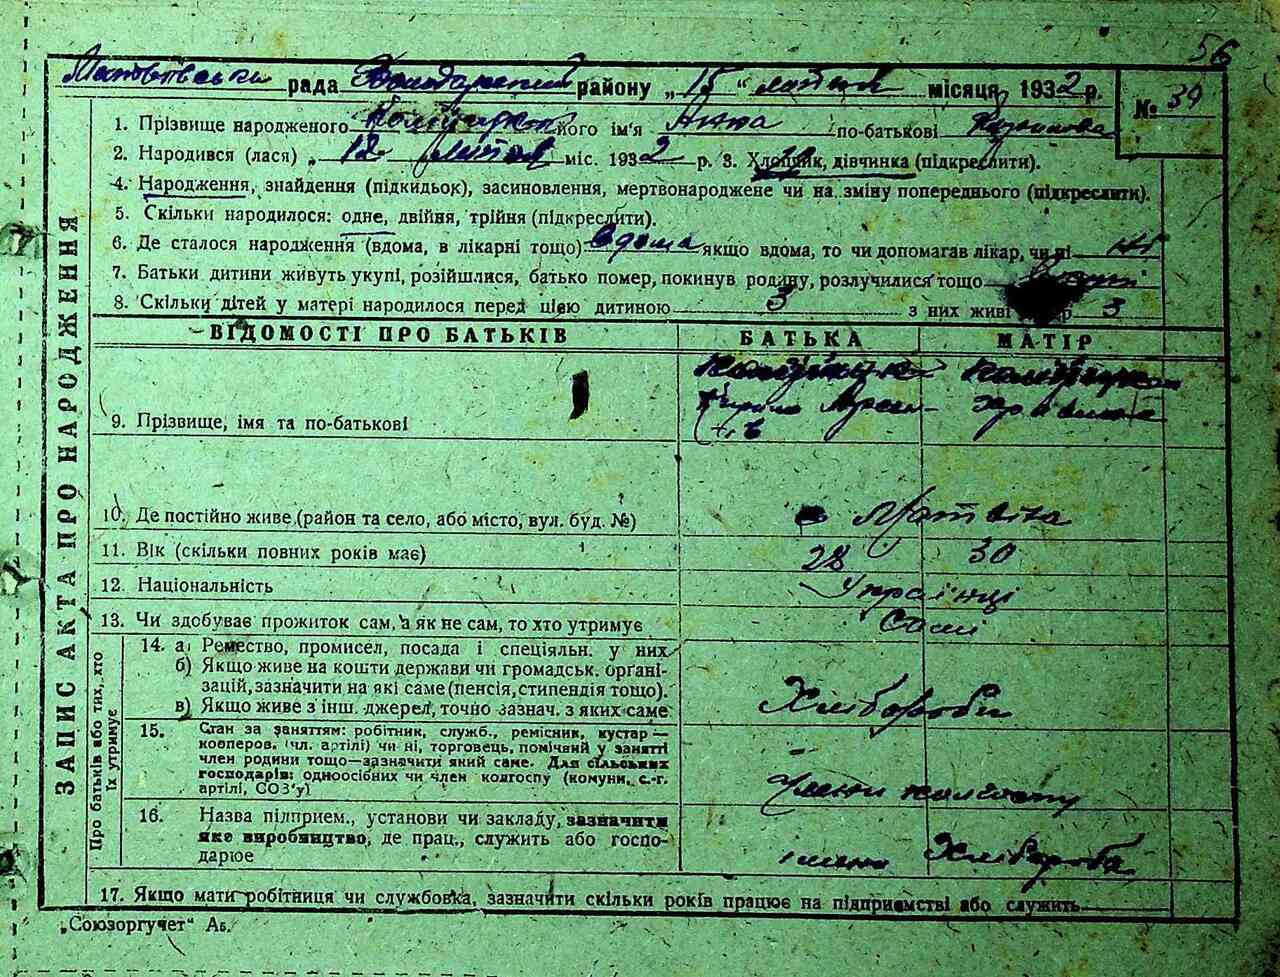 56
рада району „15 “ лютня місяця 1932 р.
№ 39
1. Прізвище народженого його ім'я Анна по-батькові
2. Народився (лася) „ 12 лютня міс. 1932 р. 3. Хлопчик, дівчинка (підкреслити).
4. Народження, знайдення (підкидьок), засиновлення, мертвонароджене чи на зміну попереднього (підкреслити).
5. Скільки народилося: одне, двійня, трійня (підкреслити).
6. Де сталося народження (вдома, в лікарні тощо) вдома якщо вдома, то чи допомагав лікар, чи ні ні
7. Батьки дитини живуть укупі, розійшлися, батько помер, покинув родину, розлучилися тощо
8. Скільки дітей у матері народилося перед цією дитиною 3 з них живі 3
ЗАПИС АКТА ПРО НАРОДЖЕННЯ
ВІДОМОСТІ ПРО БАТЬКІВ БАТЬКА МАТІР
9. Прізвище, імя та по-батькові
10. Де постійно живе (район та село, або місто, вул. буд. №)
11. Вік (скільки повних років має) 28 30
12. Національність Українці
13. Чи здобуває прожиток сам, а як не сам, то хто утримує Самі
Про батьків або тих, хто
їх утримує
14. а) Ремество, промисел, посада і спеціяльн. у них
б) Якщо живе на кошти держави чи громадськ. органі-
зацій, зазначити на які саме (пенсія, стипендія тощо).
в) Якщо живе з інш. джерел, точно зазнач. з яких саме
Хлібороби
15. Стан за заняттям: робітник, служб., ремісник, кустар —
коопсров. (чл. артілі) чи ні, торговець, помічний у занятті
член родини тощо—зазначити який саме. Для сільських
господарів: одноосібних чи член колгоспу (комуни, с.-г.
артілі, СОЗ'у)
члени колгоспу
16. Назва підприєм., установи чи закладу, зазначити
яке виробництво, де прац., служить або госпо-
дарює
імени Хлібороба
17. Якщо мати робітниця чи службовка, зазначити скільки років працює на підприємстві або служить
„Союзоргучет“ Аб.